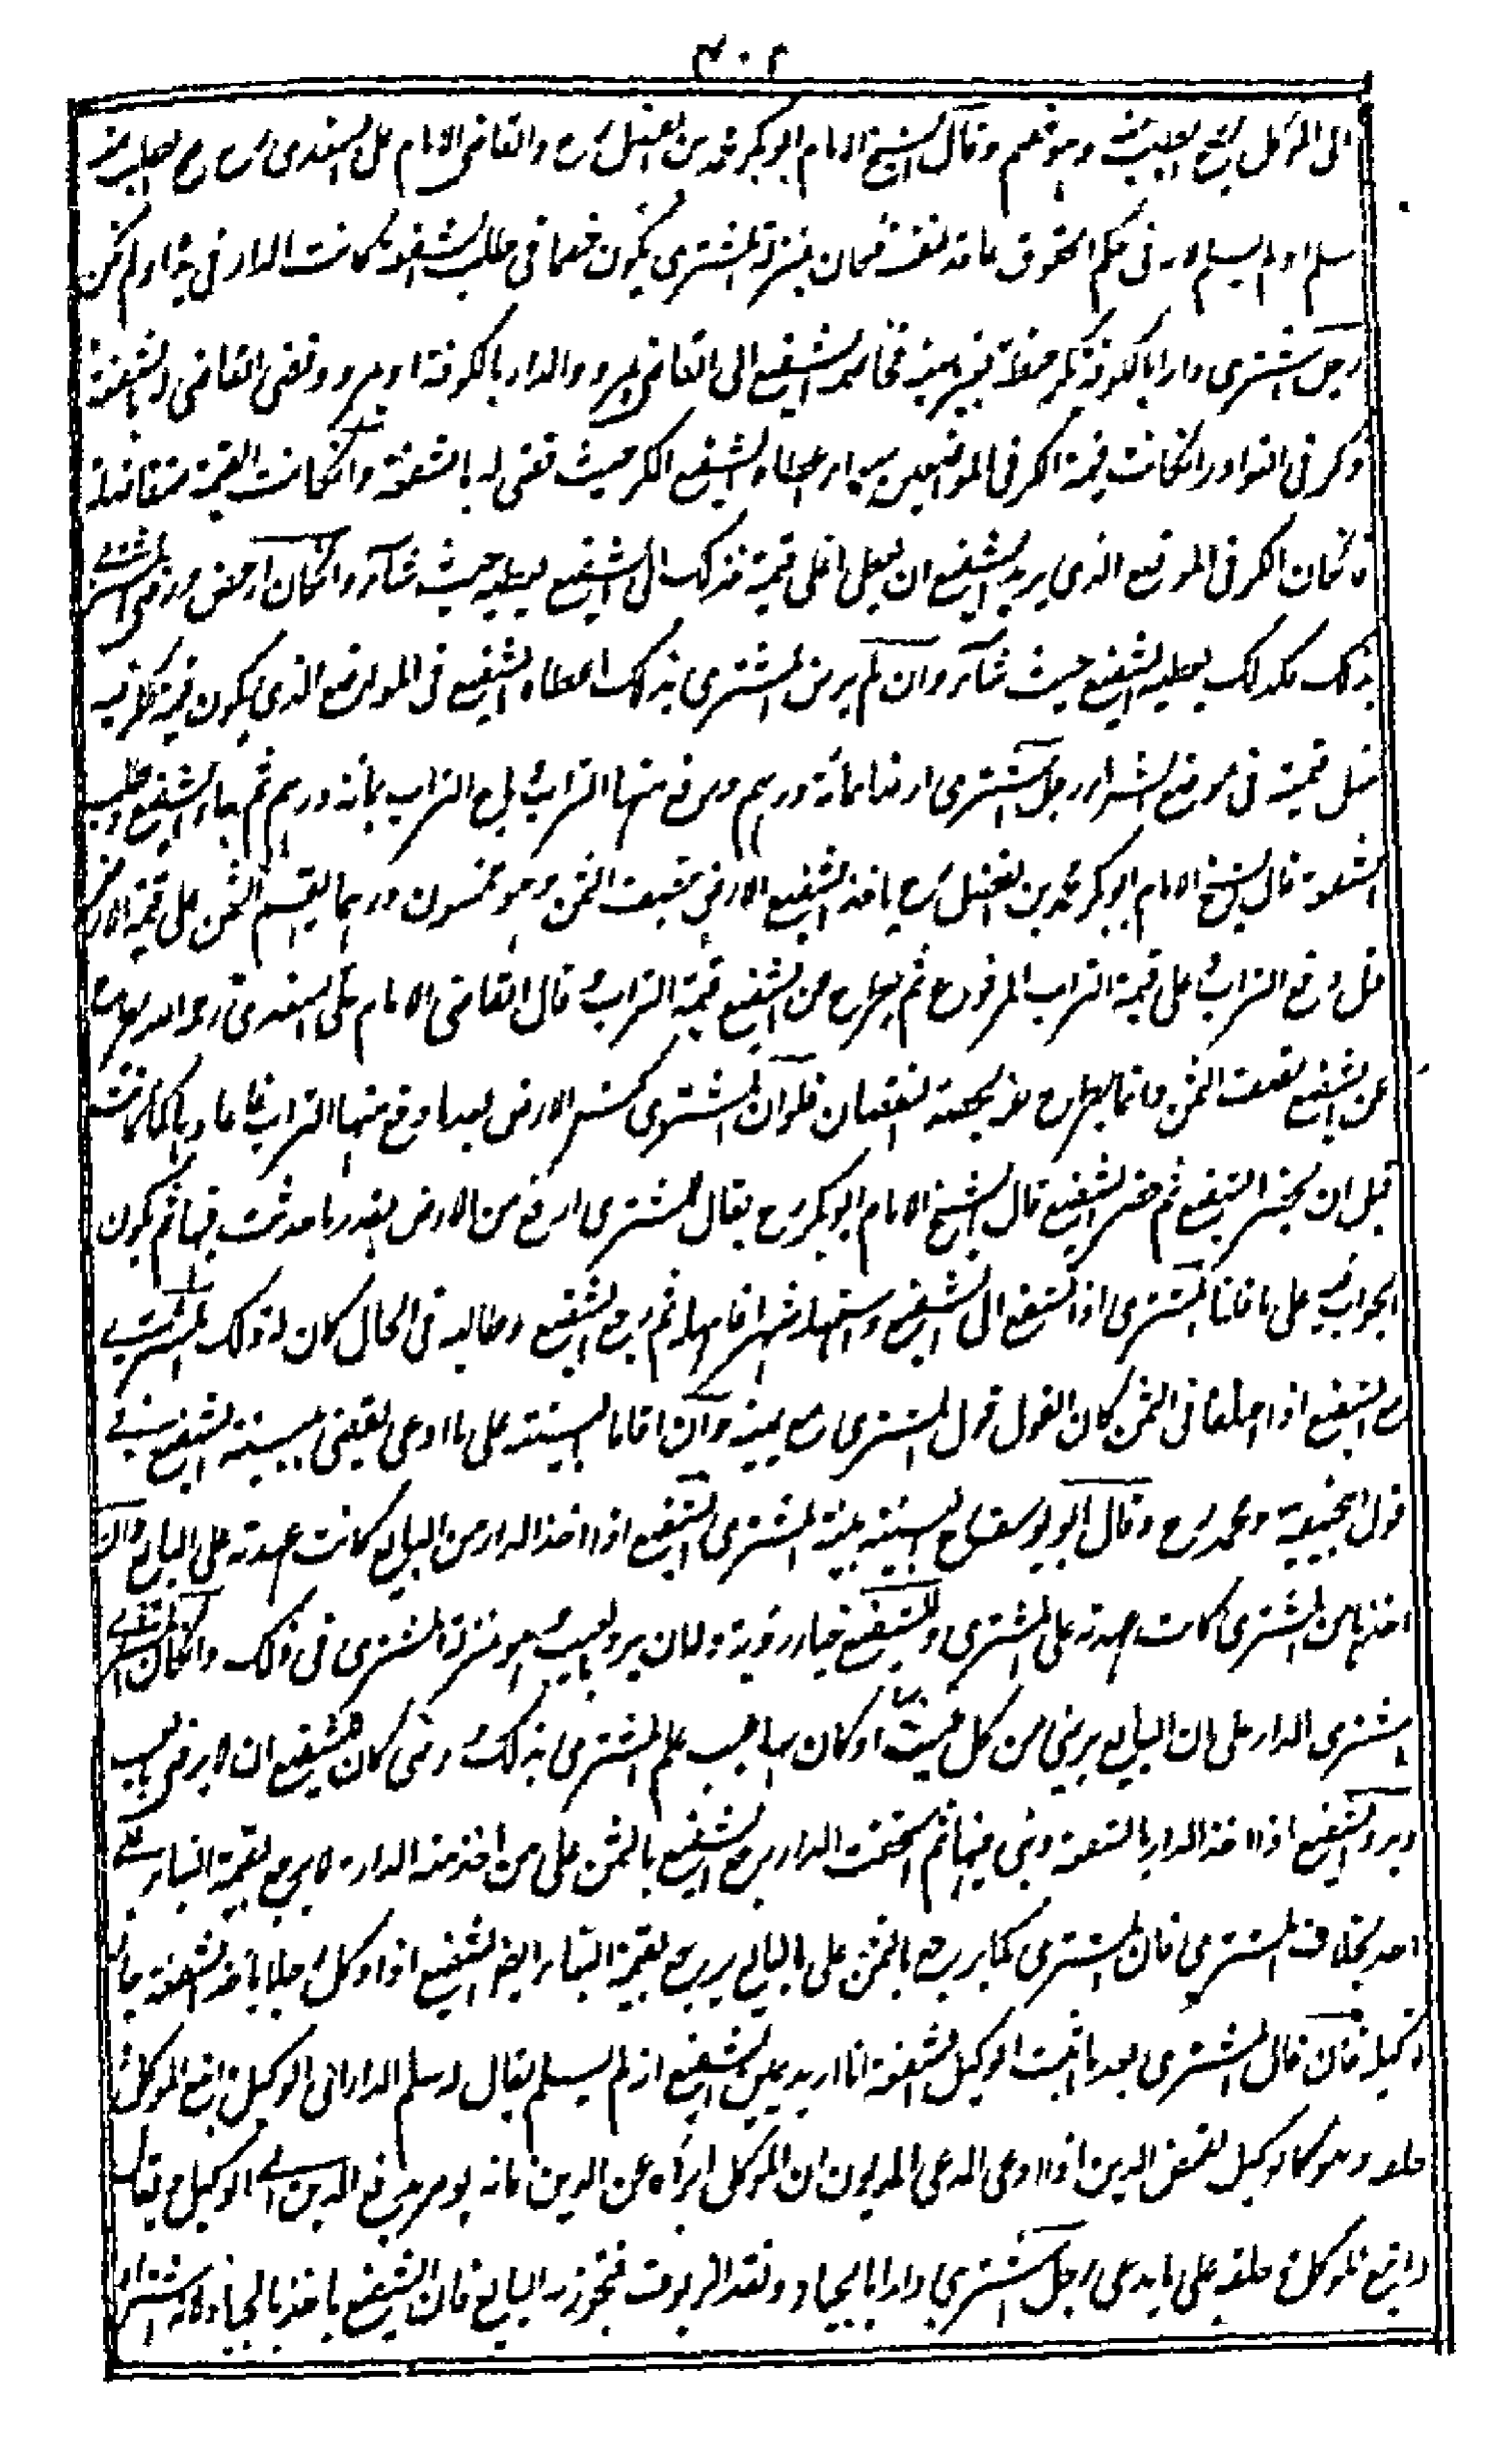 ٤٠٢
الى الموكل يصح الطلب منه وهو خصم وقال الشيخ الامام ابو بكر محمد بن الفضل رح والقاضى الامام على السغدى رح يطلب منه
سلم او لم يسلم لانه فى حكم الحقوق عاقد لنفسه فكان بمنزلة المشترى يكون خصما فى طلب الشفعة كانت الدار فى يده او لم تكن
رجل اشترى دارا بالكوفة بكر حنطة بغير عينه فخاصمه الشفيع الى القاضى بمرو والدار بالكوفة او بمرو وقضى القاضى له بالشفعة
ذكر فى النوادر ان كانت قيمة الكر فى الموضعين سواء اعطاه الشفيع الكر حيث قضى له بالشفعة وان كانت القيمة متفاضلة
فان كان الكر فى الموضع الذى يريد الشفيع ان يعطى اغلى قيمة فذلك الى الشفيع يعطيه حيث شاء وان كان ارخص ورضى المشترى
بذلك فكذلك يعطيه الشفيع حيث شاء وان لم يرض المشترى بذلك اعطاه الشفيع فى الموضع الذى يكون قيمة الكر فيه
مثل قيمته فى موضع الشراء رجل اشترى ارضا بمائة درهم ورفع منها التراب وباع التراب بمائة درهم ثم جاء الشفيع وطلب
الشفعة قال الشيخ الامام ابو بكر محمد بن الفضل رح ياخذ الشفيع الارض بنصف الثمن وهو خمسون درهما يقسم الثمن على قيمة الارض
قبل رفع التراب وعلى قيمة التراب المرفوع ثم يطرح عن الشفيع قيمة التراب وقال القاضى الامام على السغدى رح لا يطرح
عن الشفيع نصف الثمن وانما يطرح عنه بحصة النقصان فلو ان المشترى كبس الارض بعد ما رفع منها التراب فاعادها كما كانت
قبل ان يحضر الشفيع ثم حضر الشفيع قال الشيخ الامام ابو بكر رح يقال للمشترى ارفع من الارض بقدر ما حدثت فيها ثم يكون
الجواب فيه على ما قلنا المشترى اذا دفع الى الشفيع واستمهله شهرا فامهله ثم رجع الشفيع وطالبه فى الحال كان له ذلك المشترى
مع الشفيع اذا اختلفا فى الثمن كان القول قول المشترى مع يمينه وان اقاما البينة على ما ادعى يقضى ببينة الشفيع فى
قول ابى حنيفة ومحمد رح وقال ابو يوسف رح البينة بينة المشترى الشفيع اذا اخذ الدار من البايع كانت عهدته على البايع وان
اخذها من المشترى كانت عهدته على المشترى وللشفيع خيار رؤية وله ان يرد بالعيب هو بمنزلة المشترى فى ذلك وان كان المشترى
اشترى الدار على ان البايع برئ من كل عيب او كان بها عيب علم المشترى بذلك ورضى كان للشفيع ان لا يرضى بالعيب
ويرد الشفيع اذا اخذ الدار بالشفعة وبنى فيها ثم استحقت الدار يرجع الشفيع بالثمن على من اخذ منه الدار ولا يرجع بقيمة البناء على
احد بخلاف المشترى فان المشترى كما يرجع بالثمن على البايع يرجع بقيمة البناء ايضا الشفيع اذا وكل رجلا باخذ الشفعة جاز
توكيله فان قال المشترى بعد ما اثبت الوكيل الشفعة انا اريد يمين الشفيع انه لم يسلم يقال له سلم الدار الى الوكيل واتبع الموكل و
حلفه وهو كالوكيل لقبض الدين اذا ادعى المدعى المديون ان الموكل ابرأه عن الدين فانه يومر بدفع الدين الى الوكيل ويقال
واتبع الموكل وحلفه على ما يدعى رجل اشترى دارا بالجياد ونقد الزيوف فتجوز به البايع فان الشفيع ياخذ بالجياد لانه اشتراه